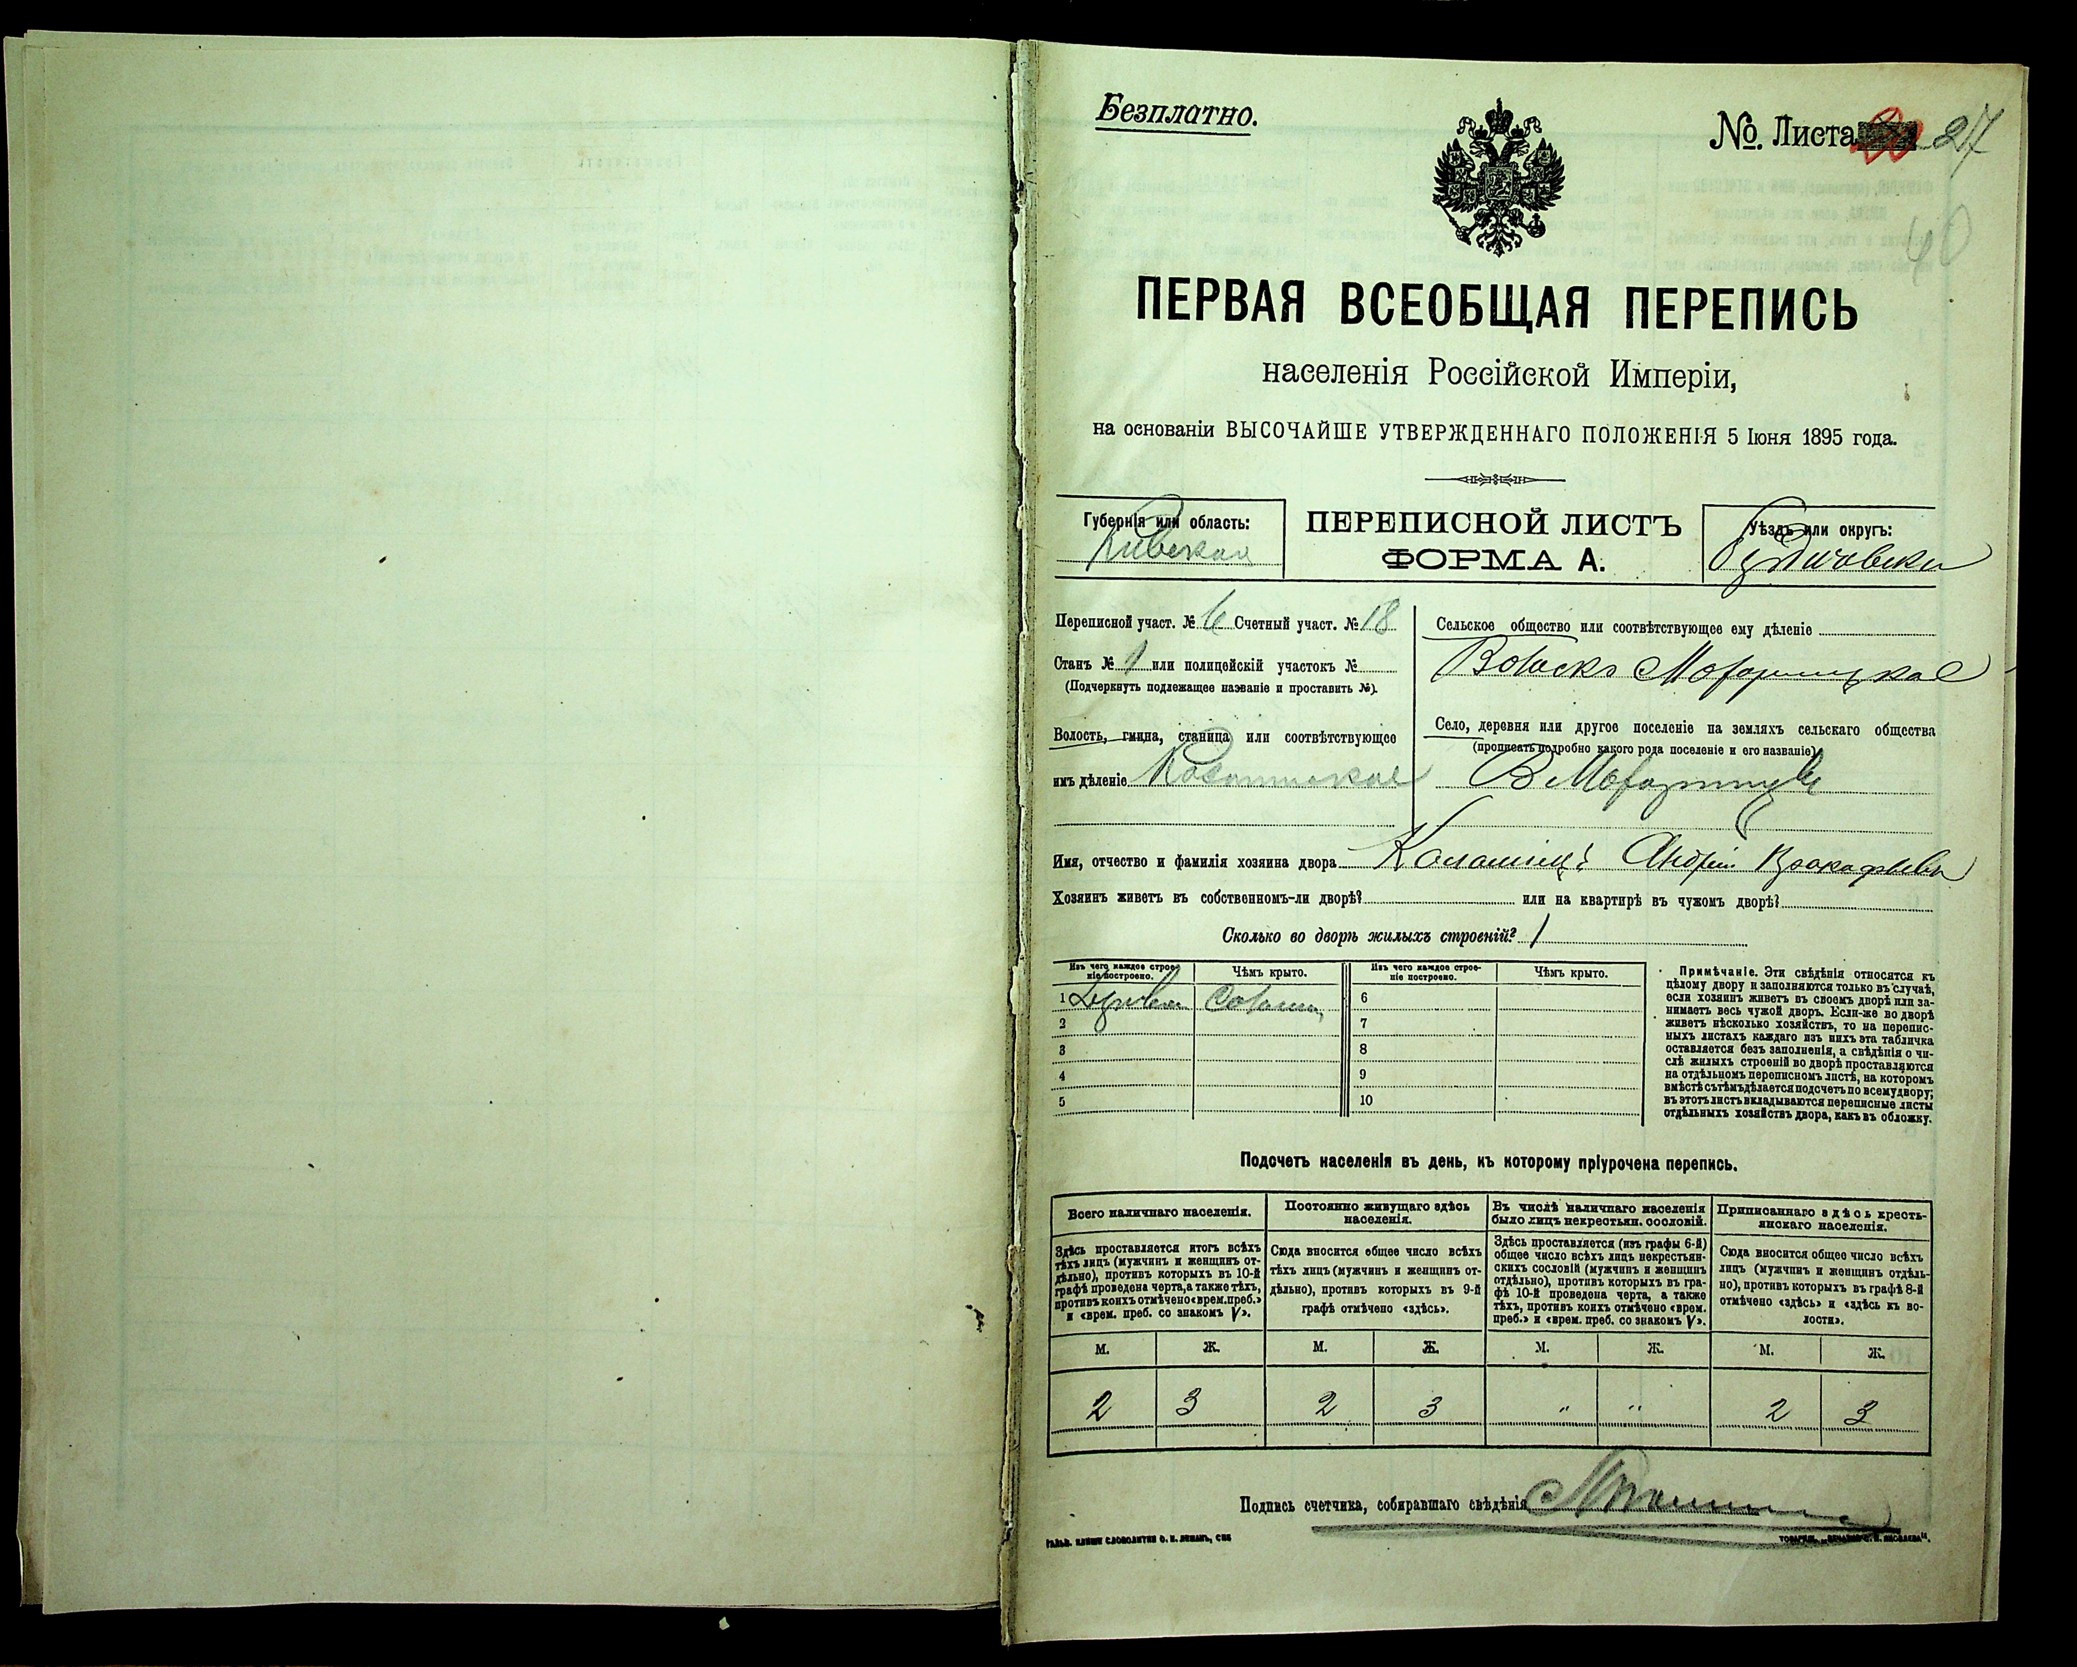 Безплатно.
№. Листа 27
40
ПЕРВАЯ ВСЕОБЩАЯ ПЕРЕПИСЬ
населенія Россійской Имперіи,
на основаніи ВЫСОЧАЙШЕ УТВЕРЖДЕННАГО ПОЛОЖЕНІЯ 5 Іюня 1895 года.
Губернія или область:
Кіевская
ПЕРЕПИСНОЙ ЛИСТЪ
ФОРМА А.
Уѣздъ или округъ:
Переписной участ. № 6 Счетный участ. № 18
Станъ № 1 или полицейскій участокъ №
(Подчеркнуть подлежащее названіе и проставить №).
Волость, гмина, станица или соотвѣтствующее
имъ дѣленіе
Сельское общество или соотвѣтствующее ему дѣленіе
Село, деревня или другое поселеніе на земляхъ сельскаго общества
(прописать подробно какого рода поселеніе и его названіе)
Имя, отчество и фамилія хозяина двора Андрій
Хозяинъ живетъ въ собственномъ-ли дворѣ? или на квартирѣ въ чужомъ дворѣ?
Сколько во дворѣ жилыхъ строеній? 1
Изъ чего каждое строе-
ніе построено.
Чѣмъ крыто.
Изъ чего каждое строе-
ніе построено.
Чѣмъ крыто.
1 6
2 7
3 8
4 9
5 10
Примѣчаніе. Эти свѣдѣнія относятся къ
цѣлому двору и заполняются только въ случаѣ,
если хозяинъ живетъ въ своемъ дворѣ или за-
нимаетъ весь чужой дворъ. Если-же во дворѣ
живетъ нѣсколько хозяйствъ, то на перепис-
ныхъ листахъ каждаго изъ нихъ эта табличка
оставляется безъ заполненія, а свѣдѣнія о чи-
слѣ жилыхъ строеній во дворѣ проставляются
на отдѣльномъ переписномъ листѣ, на которомъ
вмѣстѣ съ тѣмъ дѣлается подсчетъ по всему двору;
въ этотъ листъ вкладываются переписные листы
отдѣльныхъ хозяйствъ двора, какъ въ обложку.
Подсчетъ населенія въ день, къ которому пріурочена перепись.
Всего наличнаго населенія.
Здѣсь проставляется итогъ всѣхъ
тѣхъ лицъ (мужчинъ и женщинъ от-
дѣльно), противъ которыхъ въ 10-й
графѣ проведена черта, а также тѣхъ,
противъ коихъ отмѣчено «врем. преб.»
и «врем. преб. со знакомъ V».
Постоянно живущаго здѣсь
населенія.
Сюда вносится общее число всѣхъ
тѣхъ лицъ (мужчинъ и женщинъ от-
дѣльно), противъ которыхъ въ 9-й
графѣ отмѣчено «здѣсь».
Въ числѣ наличнаго населенія
было лицъ некрестьян. сословій.
Здѣсь проставляется (изъ графы 6-й)
общее число всѣхъ лицъ некрестьян-
скихъ сословій (мужчинъ и женщинъ
отдѣльно), противъ которыхъ въ гра-
фѣ 10-й проведена черта, а также
тѣхъ, противъ коихъ отмѣчено «врем.
преб.» и «врем. преб. со знакомъ V».
Приписаннаго здѣсь кресть-
янскаго населенія.
Сюда вносится общее число всѣхъ
лицъ (мужчинъ и женщинъ отдѣль-
но), противъ которыхъ въ графѣ 8-й
отмѣчено «здѣсь» и «здѣсь къ во-
лости».
М. Ж. М. Ж. М. Ж. М. Ж.
2 3 2 3 " " 2 3
Подпись счетчика, собиравшаго свѣдѣнія